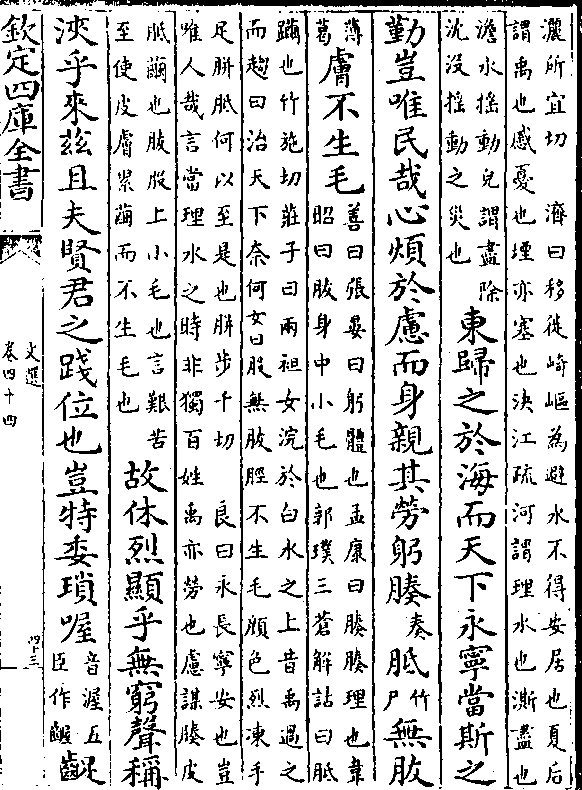 灑所宜切　濟曰移徙崎嶇為避水不得安居也夏后
謂禹也慼憂也堙亦塞也決江疏河謂理水也澌盡也
澹水揺動皃謂盡除
沈没揺動之災也
東歸之於海而天下永寧當斯之
勤豈唯民哉心煩於慮而身親其勞躬腠奏胝竹尸無胈
薄葛膚不生毛
善曰張晏曰躬體也孟康曰腠腠理也韋
昭曰胈身中小毛也郭璞三蒼解詁曰胝
繭也竹施切莊子曰兩袒女浣於白水之上昔禹過之
而趨曰治天下奈何女曰股無胈脛不生毛顔色烈凍手
足胼胝何以至是也胼步千切　良曰永長寧安也豈
唯人哉言當理水之時非獨百姓禹亦勞也慮謀腠皮
胝繭也胈股上小毛也言艱苦
至使皮膚累繭而不生毛也
故休烈顯乎無窮聲稱
浹乎來兹且夫賢君之踐位也豈特委瑣喔音渥五臣作齷齪
欽定四庫全書
文選
卷四十四
四十三